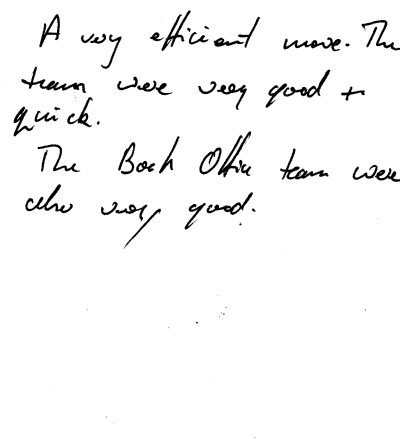 A very efficient move. The
team were very good +
quick.
The Back Office team were
also very good.